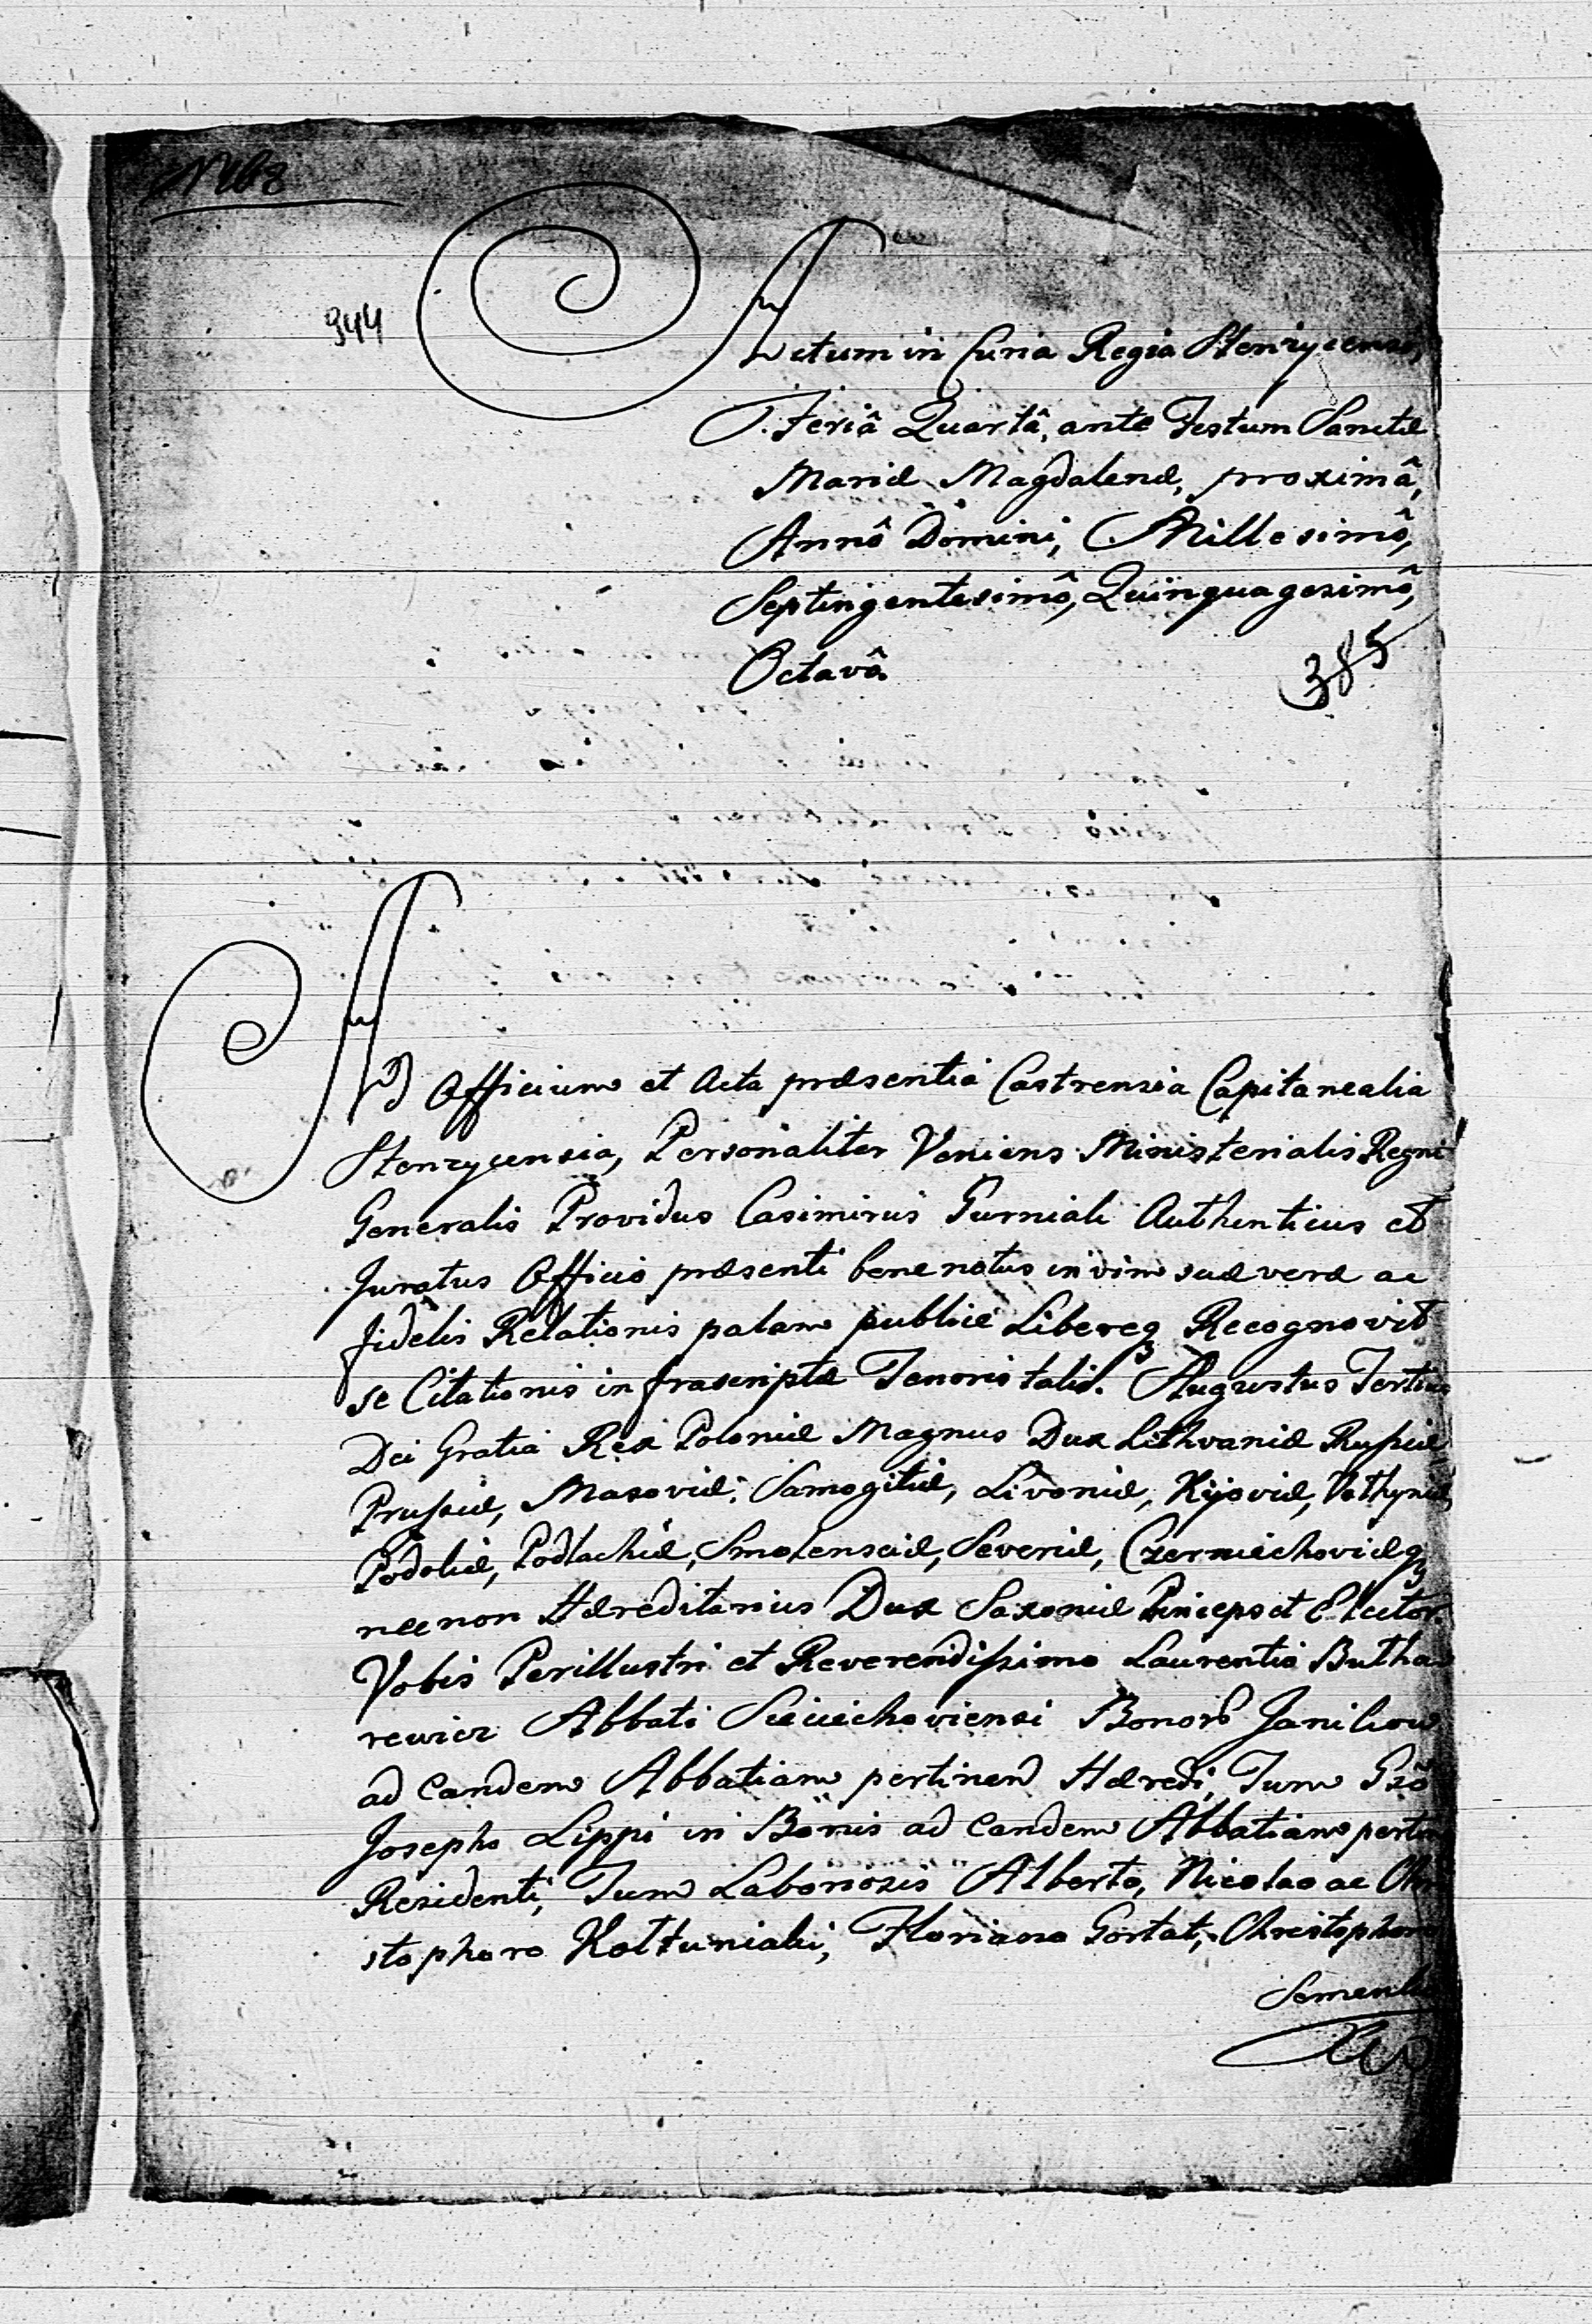 944
Actum in Curia Regia Stenzycensi,
Feriâ Quartâ, ante Festum Sanctæ
Mariæ Magdalenæ, proximâ,
Annô Domini, Millesimô,
Septingentesimô, Quinquagesimô,
Octavô.
385
Ad Officium et Acta præsentia Castrensia Capitanealia
Stenzycensia, Personaliter Veniens Ministerialis Regni
Generalis Providus Casimirus Authenticus et
Juratus Officio præsenti bene notus in vim suæ veræ ac
fidelis Relationis palam publicè Libereq Recognovit
se Citationis infrascriptæ Tenoris talis. Augustus Tertius
Dei Gratiâ Rex Poloniæ Magnus Dux Lithvaniæ Rußiæ
Prußiæ, Masoviæ, Samogitiæ, Livoniæ, Kijoviæ, Volhyniæ,
Podoliæ, Podlachiæ, Smolensciæ, Severiæ, Czerniechoviæq
necnon Hæreditarius Dux Saxoniæ Princeps et Elector.
Vobis Perillustri et Reverendißimo Laurentio Butha
rewicz Abbati Sieciechoviensi Bonor Janikow
ad eandem Abbatiam pertinen Hæredi, Tum Gso
Josepho Lippi in Bonis ad eandem Abbatiam pertin
Residenti, Tum Laboriosis Alberto, Nicolao ac Chri
stophoro Kołtuniaki, Floriano Gortat, Christophoro